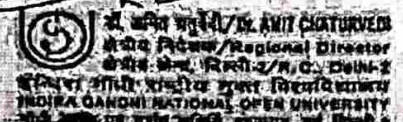 डॉ. अमित चतुर्वेदी/Dr. AMIT CHATURVEDI
क्षेत्रीय निदेशक/Regional Director
क्षेत्रीय केन्द्र, दिल्ली-2/R. C., Delhi-2
इन्दिरा गांधी राष्ट्रीय मुक्त विश्वविद्यालय
INDIRA GANDHI NATIONAL OPEN UNIVERSITY